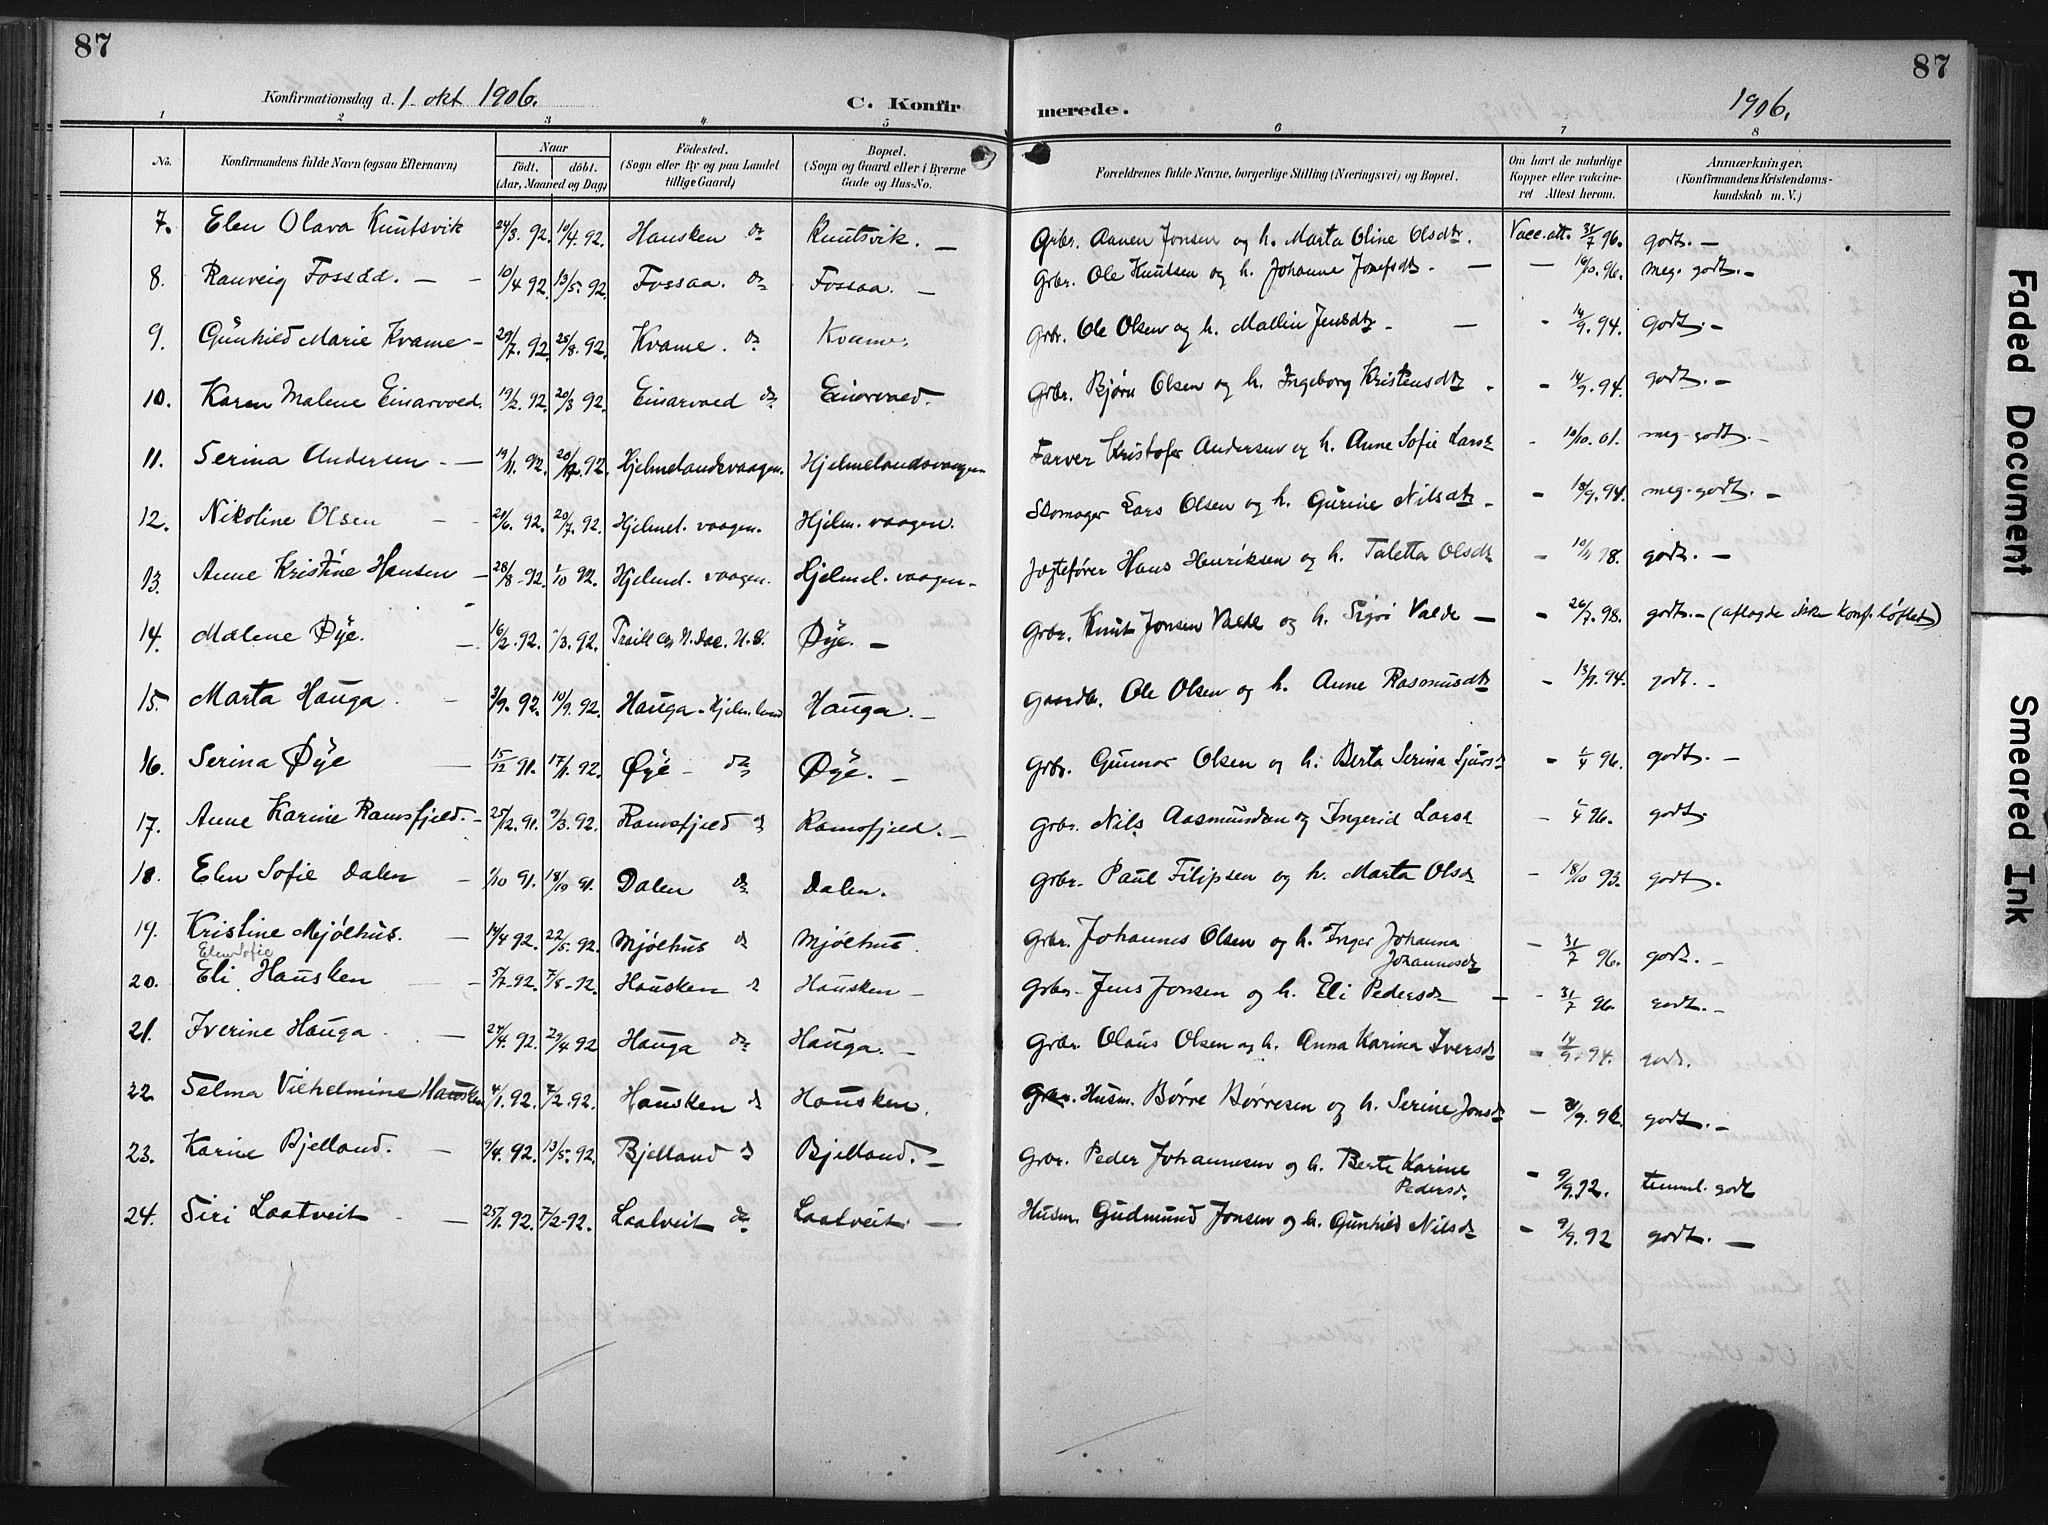 87
87
Konfirmationsdag d. 1. okt 1906.
C. Konfirmerede.
1906.
1 2 3 4 5 6 7 8
No. | Konfirmandens fulde Navn (ogsaa Efternavn) | Naar født. døbt. (Aar, Maaned og Dag) | Fødested. (Sogn eller By og paa Landet tillige Gaard) | Bopæl. (Sogn og Gaard eller i Byerne Gade og Hus-No. | Forældrenes fulde Navne, borgerlige Stilling (Næringsvei) og Bopæl. | Om havt de naturlige Kopper eller vakcineret Attest herom. | Anmærkninger, (Konfirmandens Kristendomskundskab m. V.)
7. Elen Olava Knutsvik 24/3. 92. 10/4. 92. Hausken Knutsvik. — Grbr. Aanen Jonsen og h. Marta Oline Olsdtr. Vacc. att. 31/7 96. godt. —
8. Ranveig Fossaa. — - 10/4 92. 13/5. 92. Fossaa. Fossaa. — Grbr. Ole Knutsen og h. Johanne Josefsdtr. — — 16/10. 96. meg. godt. -
9. Gunhild Marie Kvame - 29/7. 92. 25/8. 92. Kvame. Kvame. Grbr. Ole Olsen og h. Mallin Jensdtr. — - 14/9. 94. godt. —
10. Karen Malene Einarvoed. 19/2. 92. 20/3 92. Einarvoed Einarvoed. Grbr. Bjørn Olsen og h. Ingeborg Kristensdtr. - 14/9. 94. godt. —
11. Serina Andersen. — 19/11. 92. 92. Hjelmelandsvaagen. Hjelmelandsvaagen Farver Kristofer Andersen og h. Anne Sofie Larsd - 10/10. 01. meg-godt. -
12. Nikoline Olsen - 21/6. 92. 20/7. 92. Hjelmel. vaagen. Hjelm. vaagen. Skomager Lars Olsen og h. Gurine Nilsdtr - - 94. meg-godt. —
13. Anne Kristine Hansen - 28/8. 92. 1/10 92. Hjelmel. vaagen. Hjelmel. vaagen- Jægtefører Hans Henriksen og h. Taletta Olsdtr - 98. godt. —
14. Malene Øye. — 16/2. 92. 92. Øye. — Grbr. Knut Jonsen Valde og h. Sigri Valde — - 26/7. 98. godt. — (aflagde ikke konf. løftet)
15. Marta Hauga. - 3/9. 92. 10/9. 92. Hauga. Hjelm.land Hauga. — Gaardbr. Ole Olsen og h. Anne Rasmusdtr - 94. godt. -
16. Serina Øye — 15/12 91. 17/1. 92. Øye — Øye. — Grbr. Gunnar Olsen og h. Berta Serina Sjursd - 1/4 96. godt. —
17. Anne Karine Ramsfjeld. - 25/12. 91. 9/3. 92. Ramsfjeld Ramsfjeld. — Grbr. Nils Aasmundsen og Ingerid Larsd - 1/4 96. godt.
18. Elen Sofie Dalen - 1/10 91. 18/10 91. Dalen Dalen. Grbr. Paul Filipsen og h. Marta Olsd - 18/10 93. godt.
19. Kristine Mjølhus. — 14/4 92. 22/5. 92. Mjølhus Mjølhus. Grbr. Johannes Olsen og h. Inger Johanna Johannesd - 31/7 96. godt. -
Elen Sofie
20. Eli Hausken - 5/7-92. 7/8-92. Hausken Hausken — Grbr. Jens Jonsen og h. Eli Pedersd — - 31/7 96. godt. -
21. Iverine Hauga. — 24/4. 92. 29/4. 92 Hauga Hauga. — Grbr. Olaus Olsen og h. Anna Karina Iversd - 14/9. 94. godt.
22. Selma Vilhelmine Hausken 4/1. 92. 7/2. 92. Hausken Hausken. Grbr. Husm. Børre Børresen og h. Serine Jonsd - godt. -
23. Karine Bjelland. — 9/4. 92. 13/5. 92. Bjelland Bjelland. — Grbr. Peder Johannesen og h. Berte Karine Pedersd. - 9/9. 92. temmel. godt
24. Siri Laatveit — 25/1. 92. 7/2-92. Laatveit Laatveit. — Husm. Gudmund Jonsen og h. Gunhild Nilsd - 9/9. 92 godt. —
Faded Document
Smeared Ink